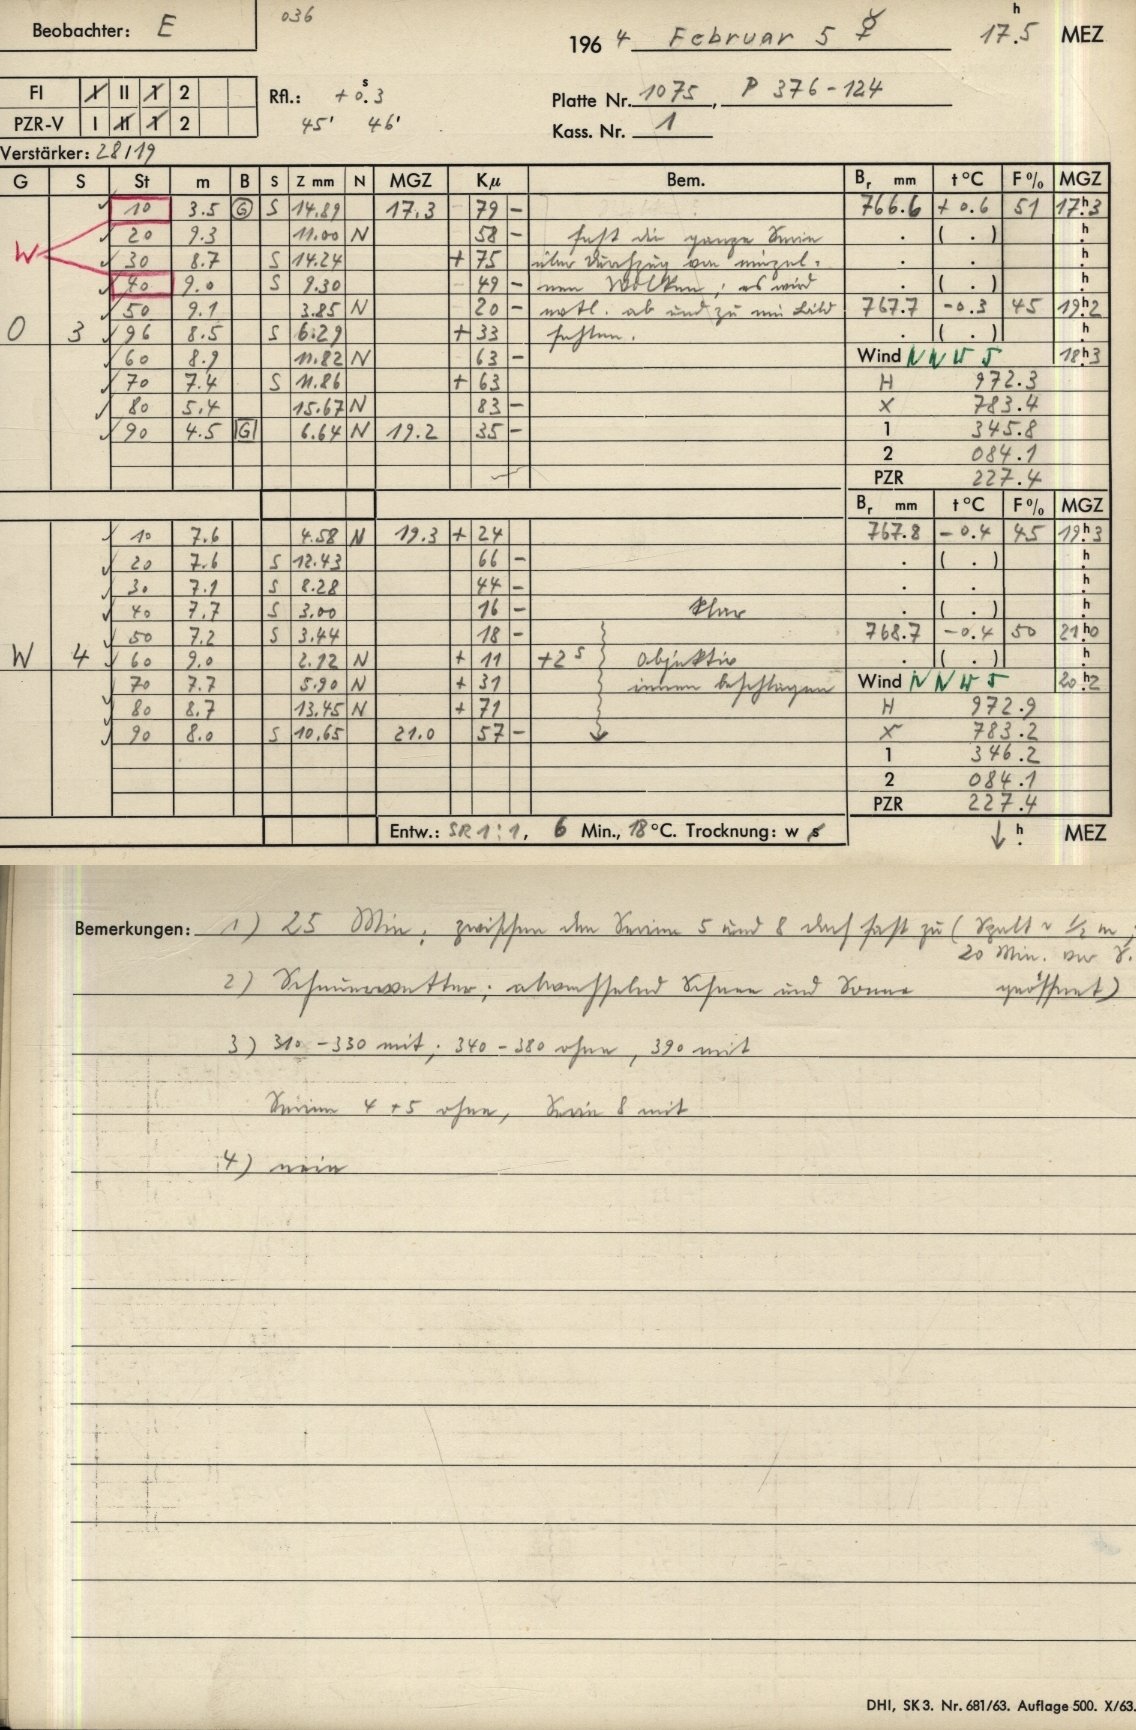 Beobachter: E
036
196 4 Februar 5 ☿ 17.5 h MEZ
FI I II 1 2
PZR-V I II 1 2
Rfl.: + 0.3 s
45' 46'
Platte Nr. 1075, P 376-124
Kass. Nr. 1
Verstärker: 28/19
G S St m B S Z mm N MGZ Kµ Bem. Br mm t °C F % MGZ
10 3.5 G S 14.89 17.3 79 – 766.6 + 0.6 51 17h3
20 9.3 11.00 N 58 – fast die ganze Serie . ( . ) h
W 30 8.7 S 14.24 + 75 über Durchzug von einzel- . . h
40 9.0 S 9.30 49 – nen Wolken; es wird . ( . ) h
50 9.1 3.85 N 20 – evtl. ab und zu ein Bild 767.7 -0.3 45 19h2
O 3 96 8.5 S 6.29 + 33 fehlen. . ( . ) h
60 8.9 11.82 N 63 – Wind NNW 5 18h3
70 7.4 S 11.86 + 63 H 972.3
80 5.4 15.67 N 83 – X 783.4
90 4.5 G 6.64 N 19.2 35 – 1 345.8
2 084.1
PZR 227.4
Br mm t °C F % MGZ
10 7.6 4.58 N 19.3 + 24 767.8 - 0.4 45 19h3
20 7.6 S 12.43 66 – . ( . ) h
30 7.1 S 8.28 44 – . . h
40 7.7 S 3.00 16 – klar . ( . ) h
50 7.2 S 3.44 18 – 768.7 -0.4 50 21h0
W 4 60 9.0 2.12 N + 11 +2 s Objektiv . ( . ) h
70 7.7 5.90 N + 31 innen beschlagen Wind NNW 5 20h2
80 8.7 13.45 N + 71 H 972.9
90 8.0 S 10.65 21.0 57 – X 783.2
1 346.2
2 084.1
PZR 227.4
Entw.: SR 1:1, 6 Min., 18 °C. Trocknung: w s
↓ h. MEZ
Bemerkungen: 1) 25 Min; zwischen den Serien 5 und 8 Dach fast zu (Spalt ~ 1/2 m;
20 Min. vor S.
2) Schauerwetter; abwechselnd Schnee und Sonne geöffnet)
3) 310 - 330 mit; 340 - 380 ohne, 390 mit
Serien 4 + 5 ohne, Serie 8 mit
4) nein
DHI, SK 3. Nr. 681/63. Auflage 500. X/63.